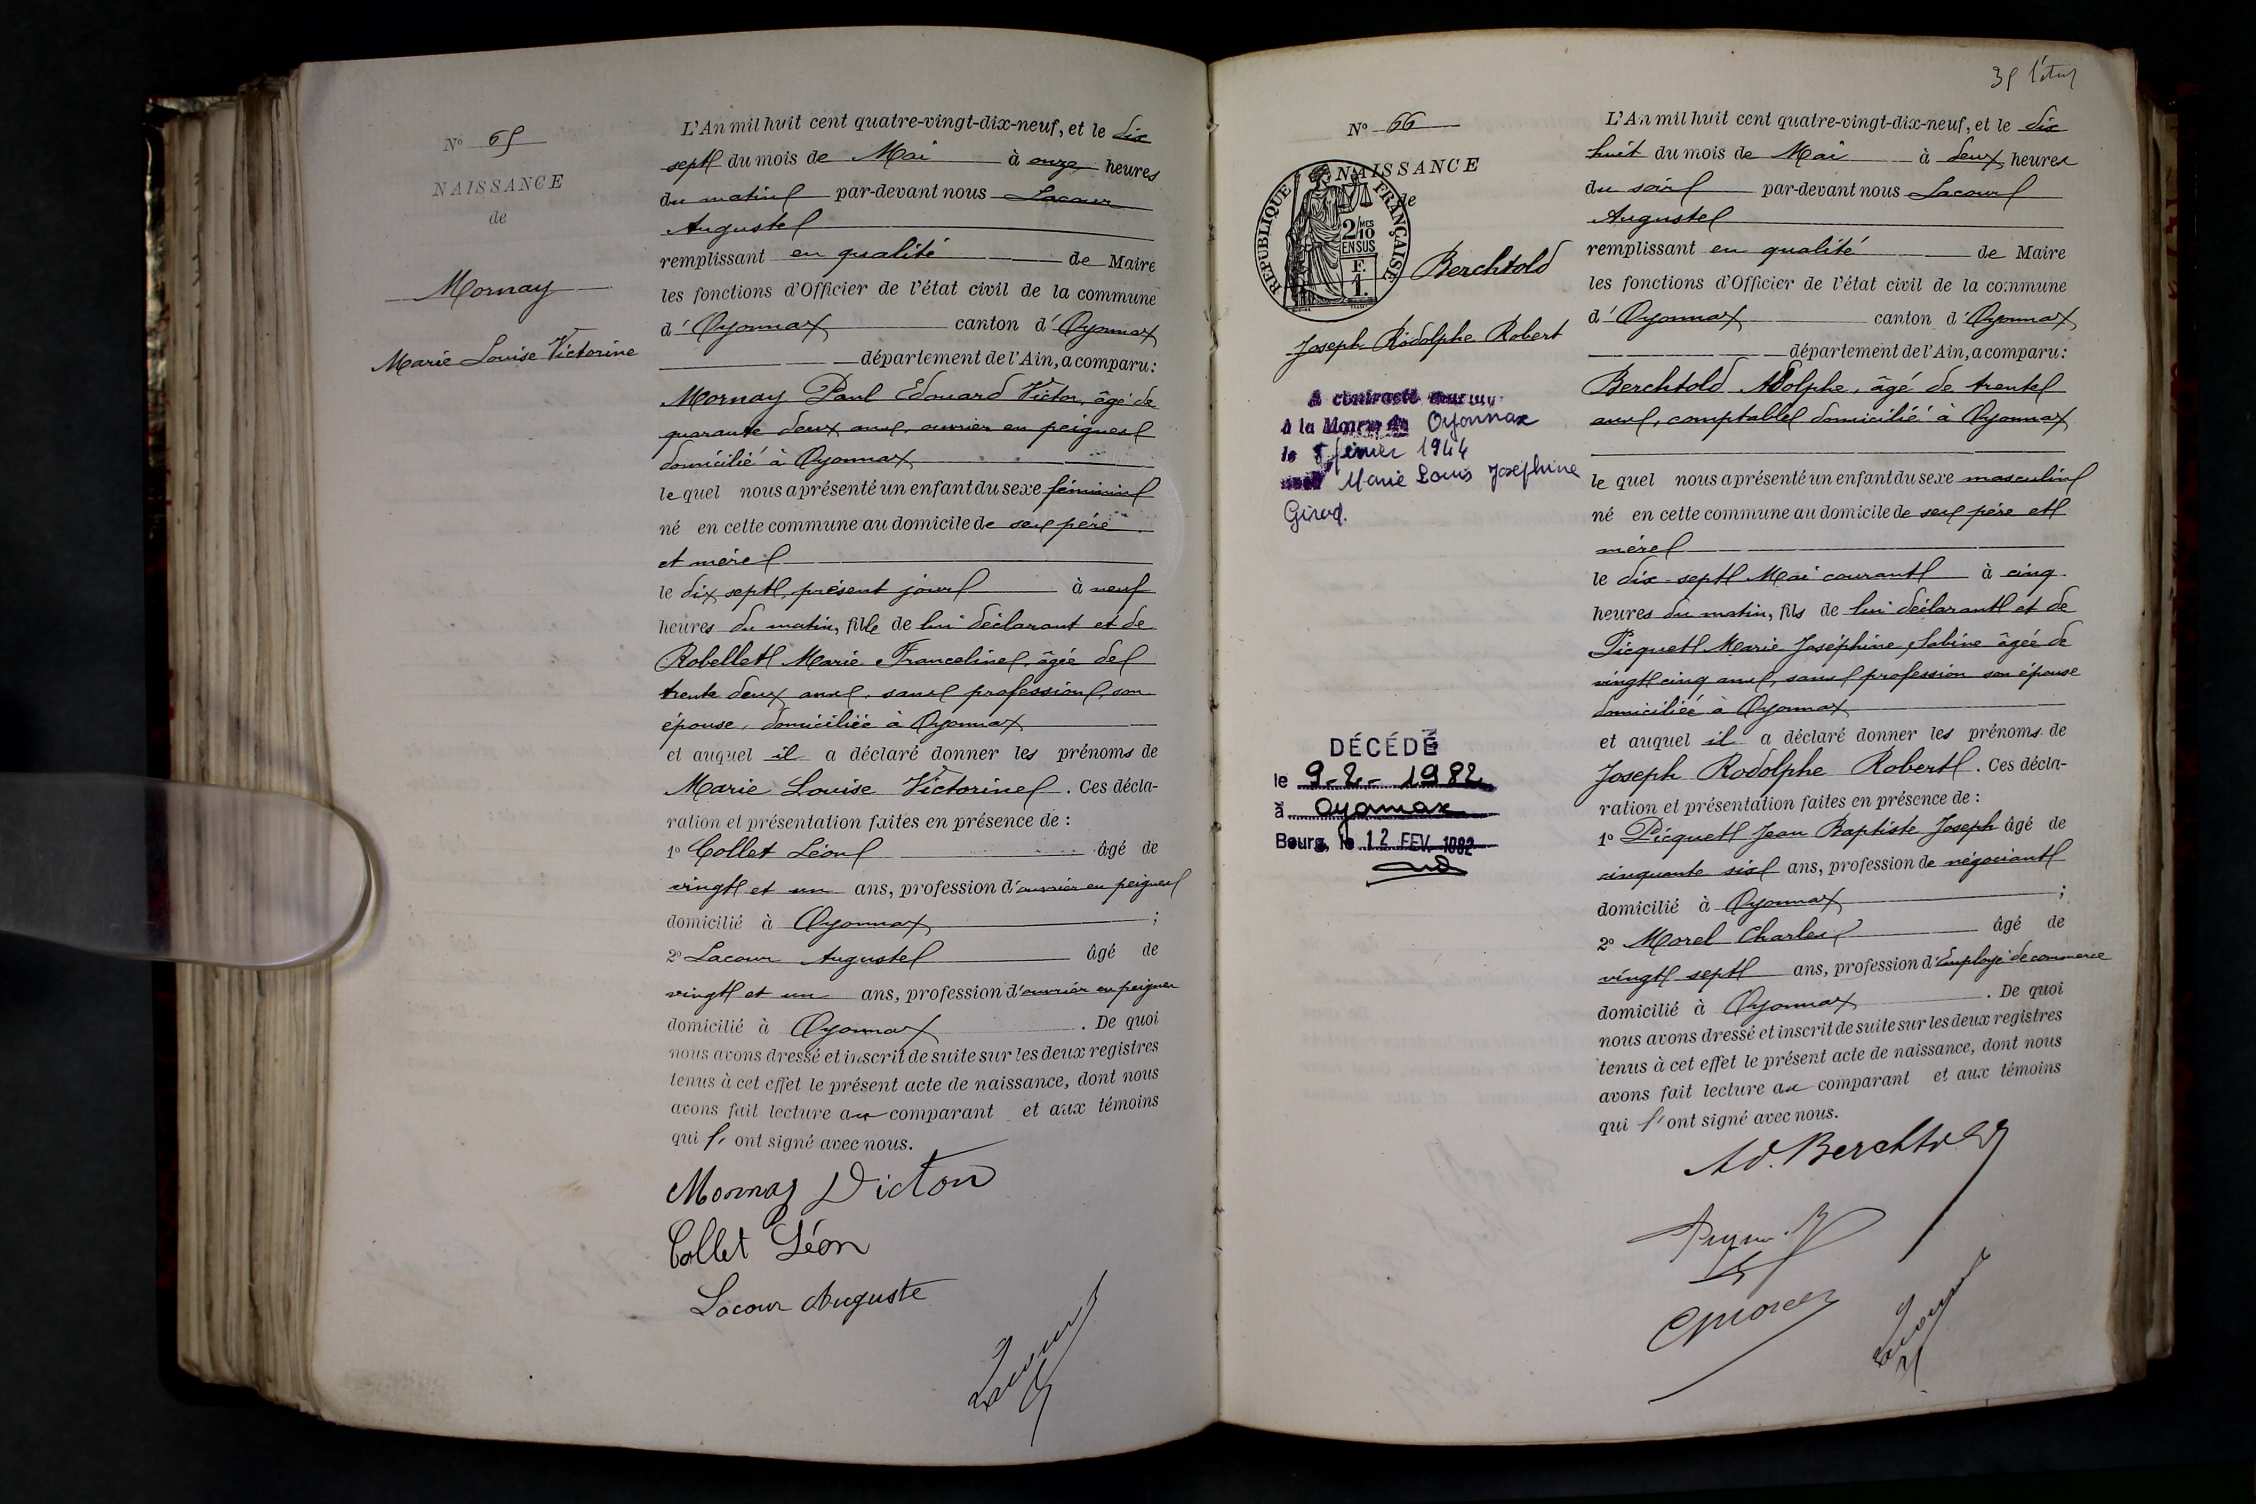 N° 65
NAISSANCE
de
Mornay
Marie Louise Victorine
L'An mil huit cent quatre-vingt-dix-neuf, et le dix
sept du mois de Mai à onze heures
du matin par-devant nous Lacour
Auguste
remplissant en qualité de Maire
les fonctions d'Officier de l'état civil de la commune
d'Oyonnax canton d'Oyonnax
département de l'Ain, a comparu:
Mornay Paul Edouard Victor, âgé de
quarante deux ans, ouvrier en peignes
domicilié à Oyonnax
le quel nous a présenté un enfant du sexe féminin
né en cette commune au domicile de ses père
et mère
le dix sept, présent jour à neuf
heures du matin, fille de lui déclarant et de
Robellet Marie Franceline, âgée de
trente deux ans, sans profession, son
épouse, domiciliée à Oyonnax
et auquel il a déclaré donner les prénoms de
Marie Louise Victorine. Ces décla-
ration et présentation faites en présence de :
1° Collet Léon âgé de
vingt et un ans, profession d'ouvrier en peignes
domicilié à Oyonnax ;
2° Lacour Auguste âgé de
vingt et un ans, profession d'ouvrier en peignes
domicilié à Oyonnax. De quoi
nous avons dressé et inscrit de suite sur les deux registres
tenus à cet effet le présent acte de naissance, dont nous
avons fait lecture au comparant et aux témoins
qui l' ont signé avec nous.
Mornay Victor
Collet Léon
Lacour Auguste
Lacour
35
N° 66
NAISSANCE
de
RÉPUBLIQUE FRANÇAISE
2/10 MES
EN SUS
F.
1.
Berchtold
Joseph Rodolphe Robert
A contracté
à la Mairie Oyonnax
le 8 février 1944
Marie Louis Joséphine
Girod.
DÉCÉDÉ
le 9-2-1982
à Oyonnax
Bourg, le 12 FEV. 1982
L'An mil huit cent quatre-vingt-dix-neuf, et le dix
huit du mois de Mai à deux heures
du soir par-devant nous Lacour
Auguste
remplissant en qualité de Maire
les fonctions d'Officier de l'état civil de la commune
d'Oyonnax canton d'Oyonnax
département de l'Ain, a comparu:
Berchtold Adolphe, âgé de trente
ans, comptable domicilié à Oyonnax
le quel nous a présenté un enfant du sexe masculin
né en cette commune au domicile de ses père et
mère
le dix-sept Mai courant à cinq
heures du matin, fils de lui déclarant et de
Picquet Marie Joséphine Sabine âgée de
vingt cinq ans, sans profession son épouse
domiciliée à Oyonnax
et auquel il a déclaré donner les prénoms de
Joseph Rodolphe Robert. Ces décla-
ration et présentation faites en présence de :
1° Picquet Jean Baptiste Joseph âgé de
cinquante six ans, profession de négociant
domicilié à Oyonnax ;
2° Morel Charles âgé de
vingt sept ans, profession d'Employé de commerce
domicilié à Oyonnax. De quoi
nous avons dressé et inscrit de suite sur les deux registres
tenus à cet effet le présent acte de naissance, dont nous
avons fait lecture au comparant et aux témoins
qui l'ont signé avec nous.
Ad. Berchtold
CMorel
Lacour